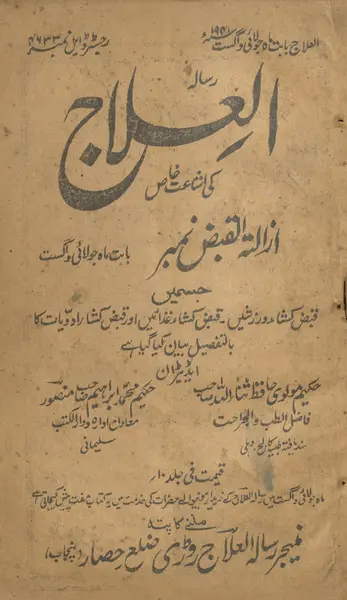 العلاج بابت ماہ جولائی و اگست ۱۹۴۱ء
رجسٹرڈ ایل نمبر ۴۶۳۳
رسالہ
العلاج
کی اشاعت خاص
ازالۃ القبض نمبر
بابت ماہ جولائی و اگست
جسمیں
قبض کشا ورزشیں ۔ قبض کشا غذائیں اور قبض کشا ادویات کا
بالتفصیل بیان کیا گیا ہے
ایڈیٹران
حکیم مولوی حافظ ثناء اللہ صاحب
فاضل الطب والجراحت
سند یافتہ طبیہ کالج دہلی
حکیم محمد ابراہیم صاحب منصور
معاون ادارہ دار الکتب
سلیمانی
قیمت فی جلد ۱۰؍
ماہ جولائی و اگست میں رسالہ العلاج کے خریدار حضرات کی خدمت میں یہ کتاب مفت پیش کیجاتی ہے
ملنے کا پتہ
منیجر رسالہ العلاج روڑی ضلع حصار (پنجاب)